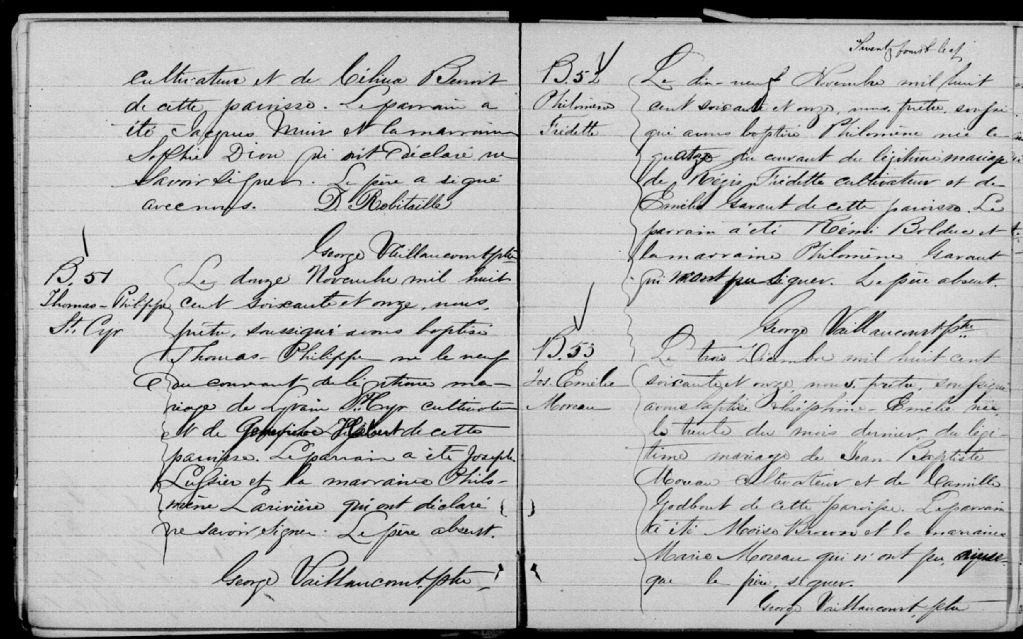 cultivateur et de Célina Benoit
de cette paroisse. Le parrain a
été Jacques Muir et la marraine
Sophie Dion qui ont déclaré ne
savoir signer. Le père a signé
avec nous. D. Robitaille
George Vaillancourt, ptre
B. 51
Thomas-Philippe
St. Cyr
Le douze Novembre mil huit
cent soixante et onze, nous,
prêtre, soussigné avons baptisé
Thomas-Philippe né le neuf
du courant du légitime ma-
riage de St. Cyr cultivateur
et de Geneviève de cette
paroisse. Le parrain a été Joseph
Lussier et la marraine Philo-
mène Larivière qui ont déclaré
ne savoir signer. Le père absent.
George Vaillancourt, ptre
Twenty fourth leaf
B. 52
Philomène
Fredette
Le dix-neuf Novembre mil huit
cent soixante et onze, nous, prêtre, soussi
qui avons baptisé Philomène née le
quatorze du courant du légitime mariage
de Régis Fredette cultivateur et de
Emélie Garant de cette paroisse. Le
parrain a été Rémi Bolduc et
la marraine Philomène Garant
qui n'ont pu signer. Le père absent.
George Vaillancourt, ptre
B. 53
Jos. Emélie
Moreau
Le trois Décembre mil huit cent
soixante et onze nous, prêtre, soussigné
avons baptisé Joséphine-Emélie née
le trente du mois dernier, du légi-
time mariage de Jean Baptiste
Moreau cultivateur et de Camille
Godbout de cette paroisse. Le parrain
a été Moïse et la marraine
Marie Moreau qui n'ont pu, ainsi
que le père, signer.
George Vaillancourt, ptre